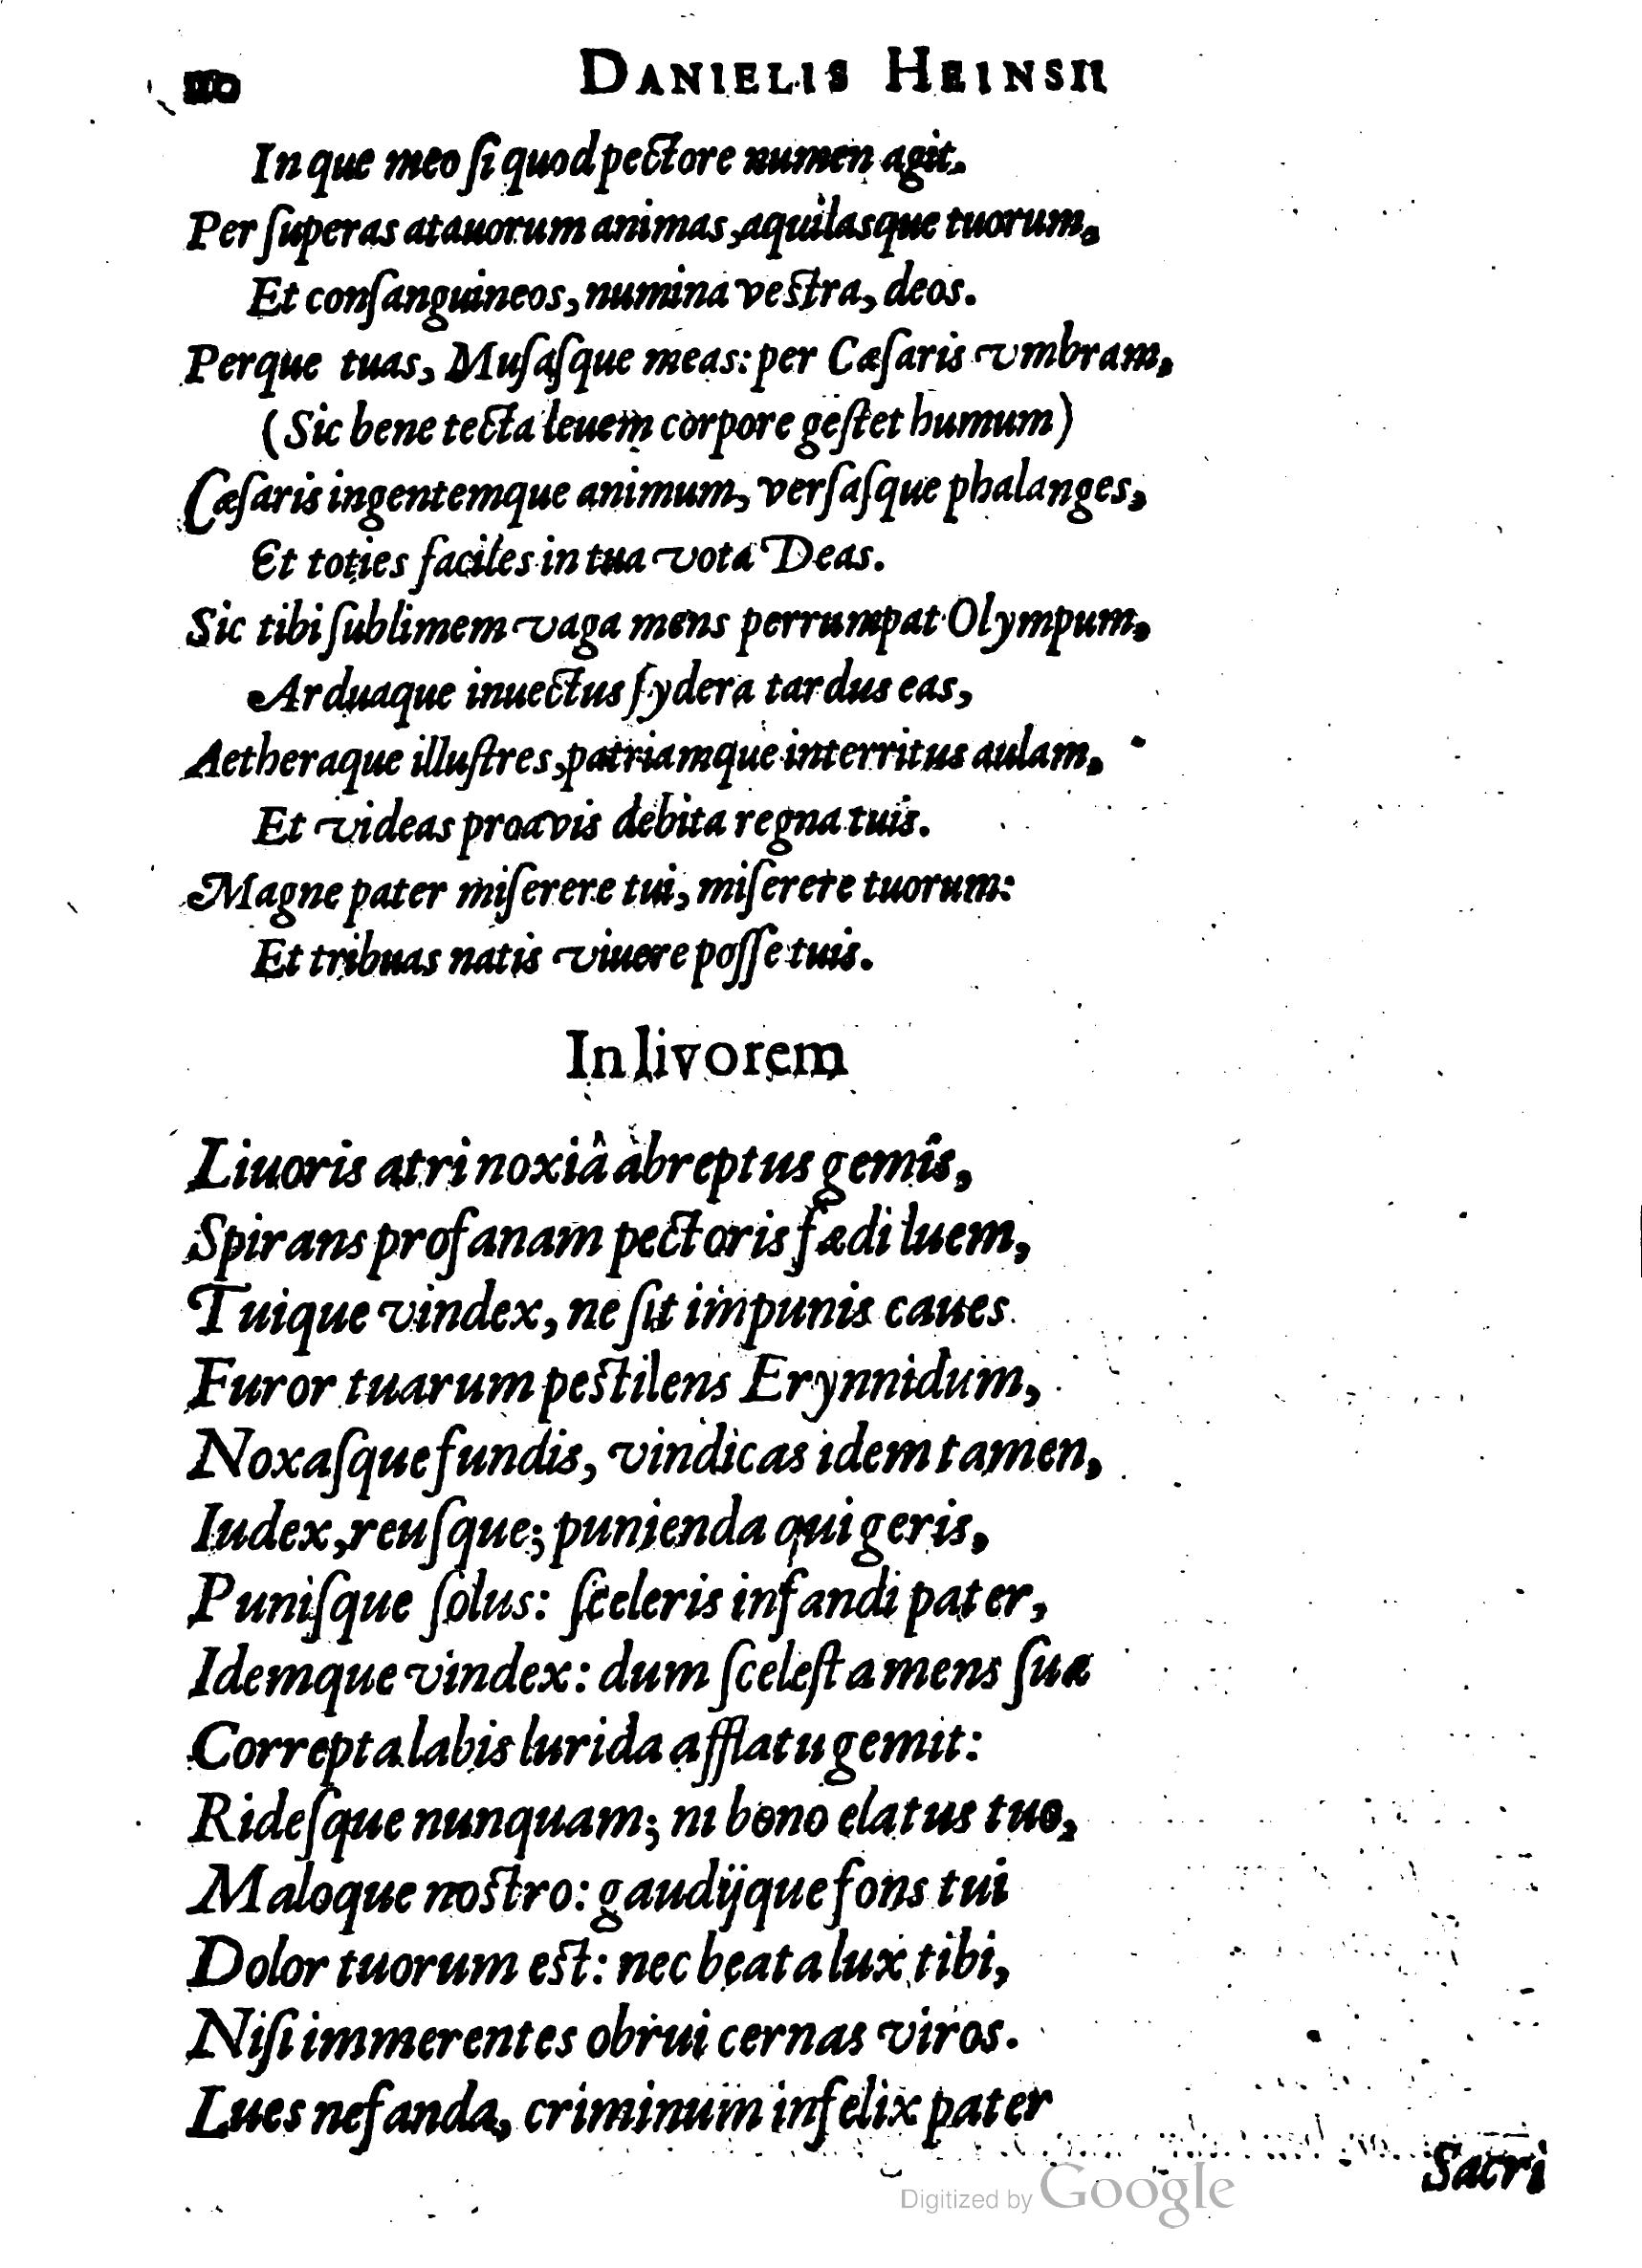 110 DANIELIS HEINSII
Inque meo ſi quod pectore numen agit.
Per ſuperas atauorum animas, aquilasque tuorum.
Et conſanguineos, numina veſtra, deos.
Perque tuas, Muſaſque meas: per Cæſaris vmbram,
(Sic bene tecta leuem corpore geſtet humum)
Cæſaris ingentemque animum, verſaſque phalanges,
Et toties faciles in tua vota Deas.
Sic tibi ſublimem vaga mens perrumpat Olympum,
Arduaque inuectus ſydera tardus eas,
Aetheraque illuſtres, patriamque interritus aulam,
Et videas proavis debita regna tuis.
Magne pater miſerere tui, miſerere tuorum:
Et tribuas natis viuere poſſe tuis.
In livorem
Liuoris atri noxiâ abreptus gemîs,
Spirans profanam pectoris fædi luem,
Tuique vindex, ne ſit impunis caues
Furor tuarum peſtilens Erynnidum,
Noxaſque fundis, vindicas idem tamen,
Iudex, reuſque; punienda qui geris,
Puniſque ſolus: ſceleris infandi pater,
Idemque vindex: dum ſceleſta mens ſuæ
Correpta labis lurida afflatu gemit:
Rideſque nunquam; ni bono elatus tuo,
Maloque noſtro: gaudijque fons tui
Dolor tuorum eſt: nec beata lux tibi,
Niſi immerentes obrui cernas viros.
Lues nefanda, criminum infelix pater
Sacri
Digitized by Google